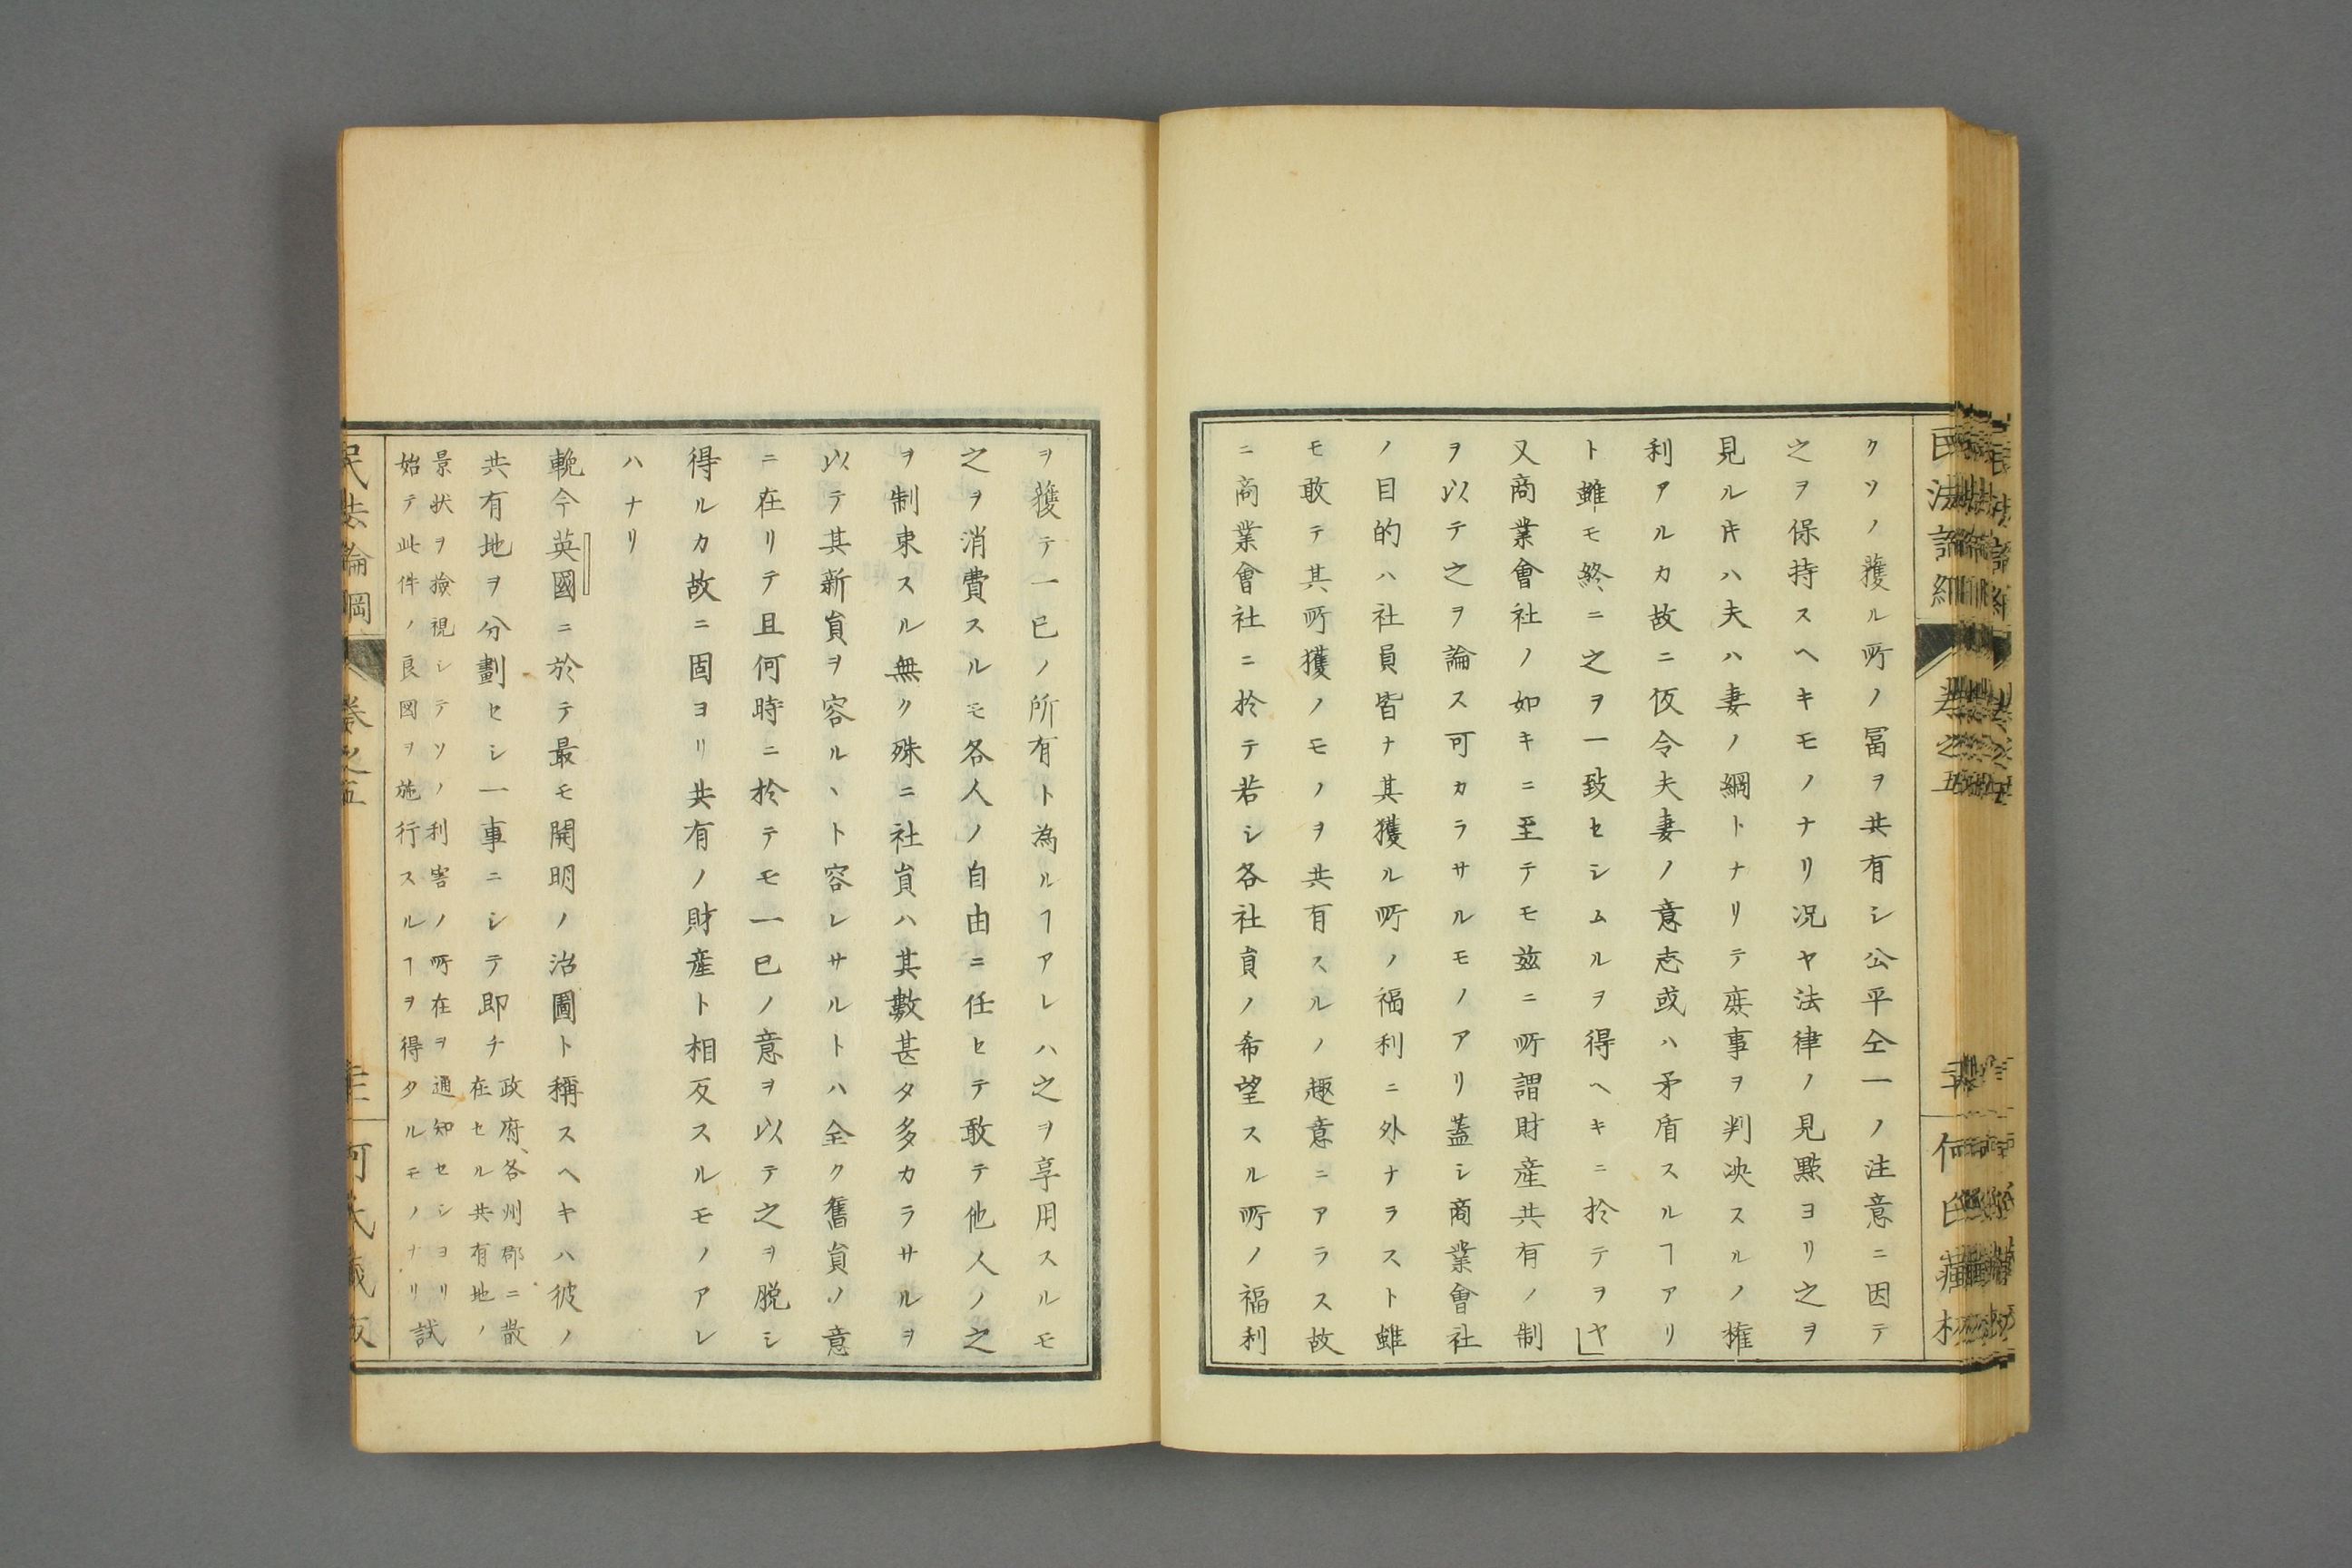 クソノ獲ル所ノ冨ヲ共有シ公平仝一ノ注意ニ因テ
之ヲ保持スヘキモノナリ况ヤ法律ノ見點ヨリ之ヲ
見ルキハ夫ハ妻ノ綱トナリテ庶事ヲ判决スルノ権
利アルカ故ニ仮令夫妻ノ意志或ハ矛盾スルヿアリ
ト雖モ終ニ之ヲ一致セシムルヲ得ヘキニ於テヲヤ
又商業會社ノ如キニ至テモ茲ニ所謂財産共有ノ制
ヲ以テ之ヲ論ス可カラサルモノアリ蓋シ商業會社
ノ目的ハ社員皆ナ其獲ル所ノ福利ニ外ナラスト雖
モ敢テ其所獲ノモノヲ共有スルノ趣意ニアラス故
ニ商業會社ニ於テ若シ各社員ノ希望スル所ノ福利
ヲ獲テ一已ノ所有ト為ルヿアレハ之ヲ享用スルモ
之ヲ消費スルモ各人ノ自由ニ任セテ敢テ他人ノ之
ヲ制束スル無ク殊ニ社員ハ其數甚タ多カラサルヲ
以テ其新員ヲ容ルヽト容レサルトハ全ク舊員ノ意
ニ在リテ且何時ニ於テモ一已ノ意ヲ以テ之ヲ脱シ
得ルカ故ニ固ヨリ共有ノ財産ト相反スルモノアレ
ハナリ
輓今英國ニ於テ最モ開明ノ治圖ト稱スヘキハ彼ノ
共有地ヲ分劃セシ一事ニシテ即チ
政府各州郡ニ散
在セル共有地ノ
景状ヲ撿視シテソノ利害ノ所在ヲ通知セシヨリ試
始テ此件ノ良図ヲ施行スルヿヲ得タルモノナリ
民法論綱
卷之五
何氏藏版